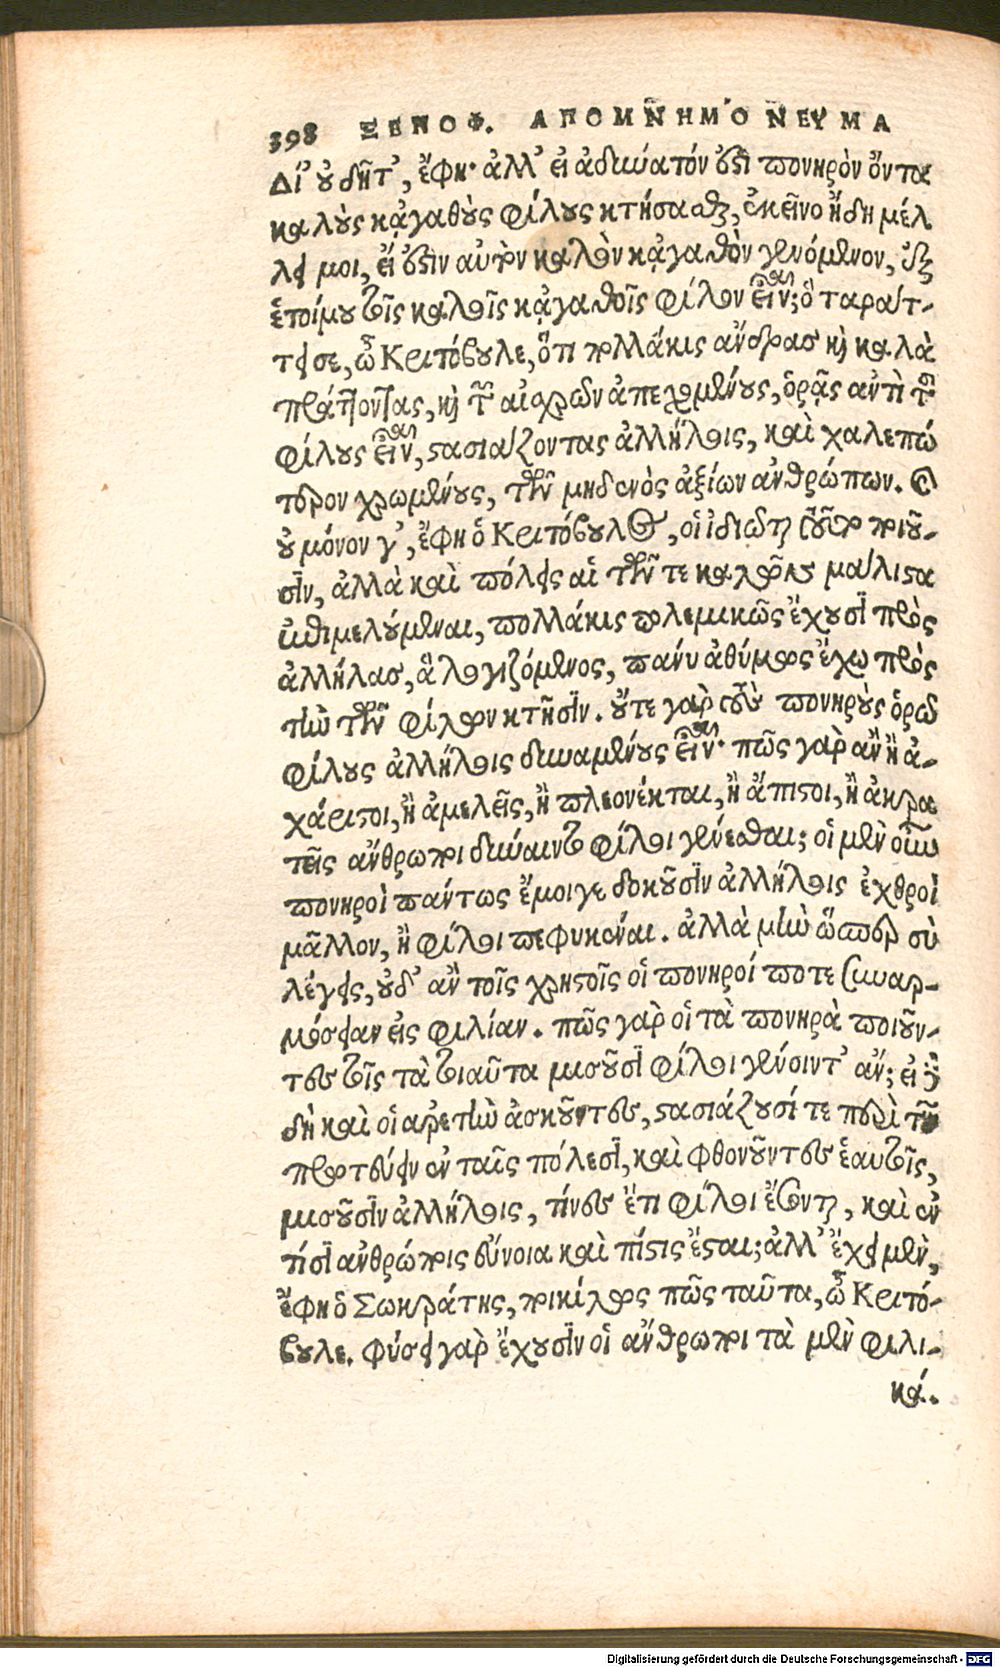 398 ΞΕΝΟΦ. ΑΠΟΜΝΗΜΟΝΕΥΜΑ
Δί' οὐ δῆτ', ἔφη· ἀλλ' εἰ ἀδιώατόν ὅτι πονηρὸν ὄντα
καλοὺς κἀγαθοὺς φίλους κτήσαθαι, ἐκεῖνο ἤδη μέλ
λει μοι, εἰ ἔστιν αὐτὸν καλὸν κἀγαθὸν γενόμενον, ἐξ
ἑτοίμου τοῖς καλοῖς κἀγαθοῖς φίλον εἶναι; ὃ ταράτ-
τει σε, ὦ Κριτόβουλε, ὅτι πολλάκις ἄνδρας καὶ καλὰ
πράττοντας, καὶ τῶν αἰσχρῶν ἀπεχομένους, ὁρᾷς ἀντὶ τοῦ
φίλους εἶναι, στασιάζοντας ἀλλήλοις, καὶ χαλεπώ
τερον χρωμένους, τῶν μηδενὸς ἀξίων ἀνθρώπων. καὶ
οὐ μόνον γ', ἔφη ὁ Κριτόβουλος, οἱ ἰδιῶται τοῦτο ποιοῦ-
σιν, ἀλλὰ καὶ πόλεις αἱ τῶν τε καλῶν μάλιστα
ἐπιμελούμεναι, πολλάκις πολεμικῶς ἔχουσι πρὸς
ἀλλήλας, ἃ λογιζόμενος, πάνυ ἀθύμως ἔχω πρὸς
τὴν τῶν φίλων κτῆσιν. οὔτε γὰρ τοὺς πονηροὺς ὁρῶ
φίλους ἀλλήλοις δυναμένους εἶναι· πῶς γὰρ ἂν ἢ ἀ-
χάριστοι, ἢ ἀμελεῖς, ἢ πλεονέκται, ἢ ἄπιστοι, ἢ ἀκρα
τεῖς ἄνθρωποι δύναιντο φίλοι γενέσθαι; οἱ μὲν οὖν
πονηροὶ πάντως ἔμοιγε δοκοῦσιν ἀλλήλοις ἐχθροὶ
μᾶλλον, ἢ φίλοι πεφυκέναι. ἀλλὰ μὴν ὥσπερ σὺ
λέγεις, οὐδ' ἂν τοῖς χρηστοῖς οἱ πονηροί ποτε συναρ-
μόσειαν εἰς φιλίαν. πῶς γὰρ οἱ τὰ πονηρὰ ποιοῦν-
τες τοῖς τὰ τοιαῦτα μισοῦσι φίλοι γένοιντ' ἄν; εἰ δὲ
δὴ καὶ οἱ ἀρετὴν ἀσκοῦντες, στασιάζουσί τε περὶ τοῦ
πρωτεύειν ἐν ταῖς πόλεσι, καὶ φθονοῦντες ἑαυτοῖς,
μισοῦσιν ἀλλήλοις, τίνες ἔτι φίλοι ἔσονται, καὶ ἐν
τίσι ἀνθρώποις εὔνοια καὶ πίστις ἔσται; ἀλλ' ἔχει μὲν,
ἔφη ὁ Σωκράτης, ποικίλως πῶς ταῦτα, ὦ Κριτό-
βουλε. φύσει γὰρ ἔχουσιν οἱ ἄνθρωποι τὰ μὲν φιλι-
κά.
Digitalisierung gefördert durch die Deutsche Forschungsgemeinschaft - DFG